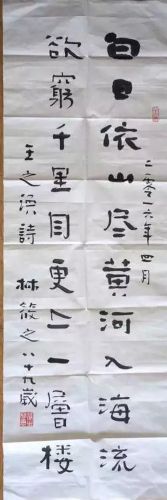 白日依山尽黃河入海流
二零一六年四月
欲窮千里目更上一層楼
王之渙詩 林筱之八十九歲